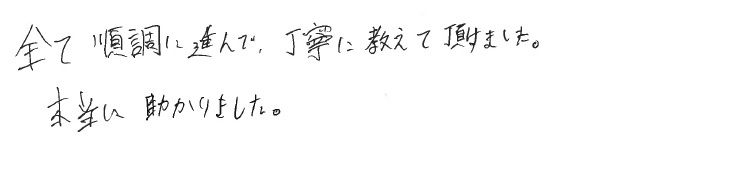 全て順調に進んで、丁寧に教えて頂けました。
本当に助かりました。